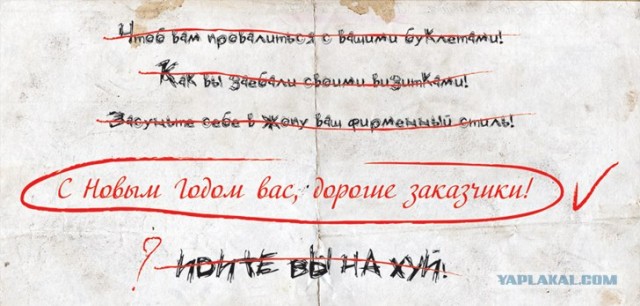 Чтоб вам провалиться с вашими буклетами!
Как вы заебали своими визитками!
Засуньте себе в жопу ваш фирменный стиль!
С Новым Годом вас, дорогие заказчики!
? ИДИТЕ ВЫ НА ХУЙ!
YAPLAKAL.COM